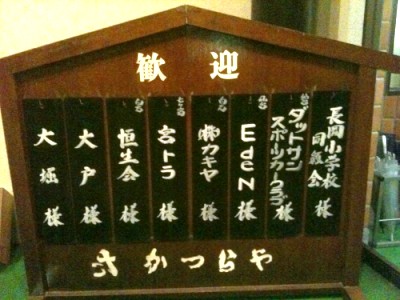 歓迎
長岡小学校
同級会 様
ダットサン
スポーツカークラブ 様
EdeN 様
㈱カキヤ 様
宮トラ 様
恒生会 様
大戸 様
大堀 様
さかつらや